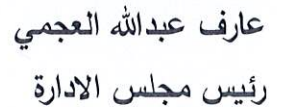 عارف عبدالله العجمي
رئيس مجلس الادارة